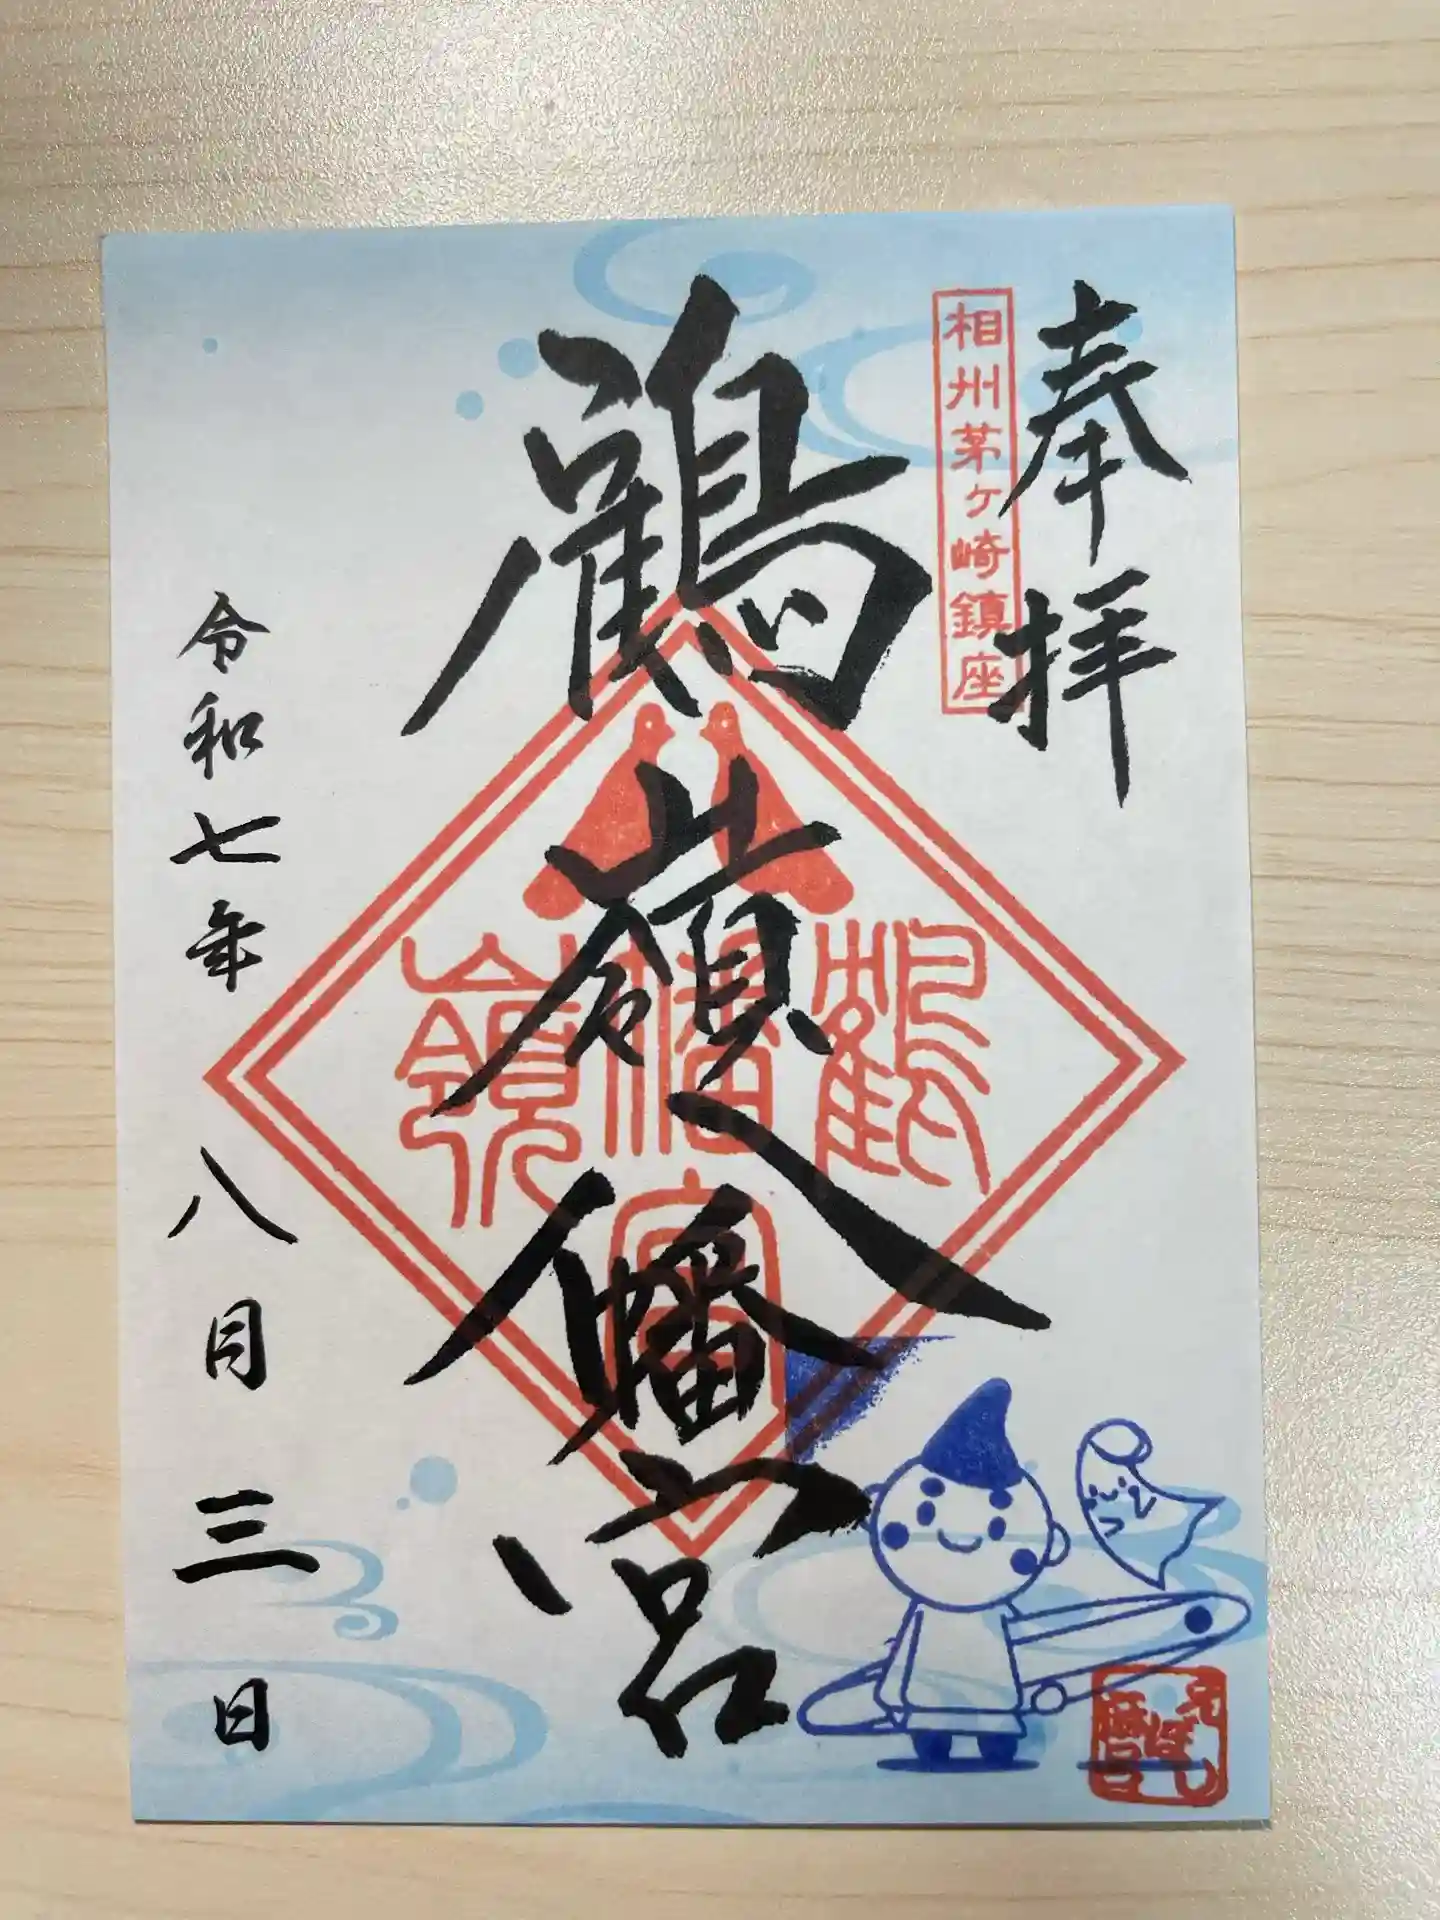 奉拝
相州茅ヶ崎鎮座
鶴嶺八幡宮
鶴嶺
八幡宮
令和七年八月三日
えぼし
麻呂